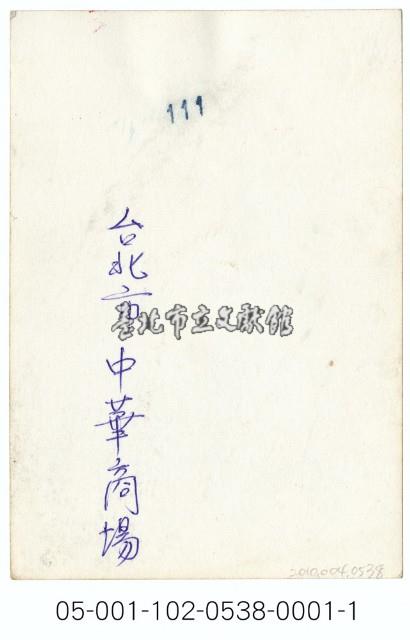 111
台北市中華商場
臺北市立文獻館
2010.004.0538
05-001-102-0538-0001-1